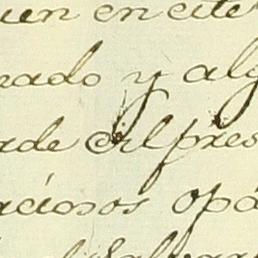 uen en este
eado y alg
rde del pres
aciosos opa